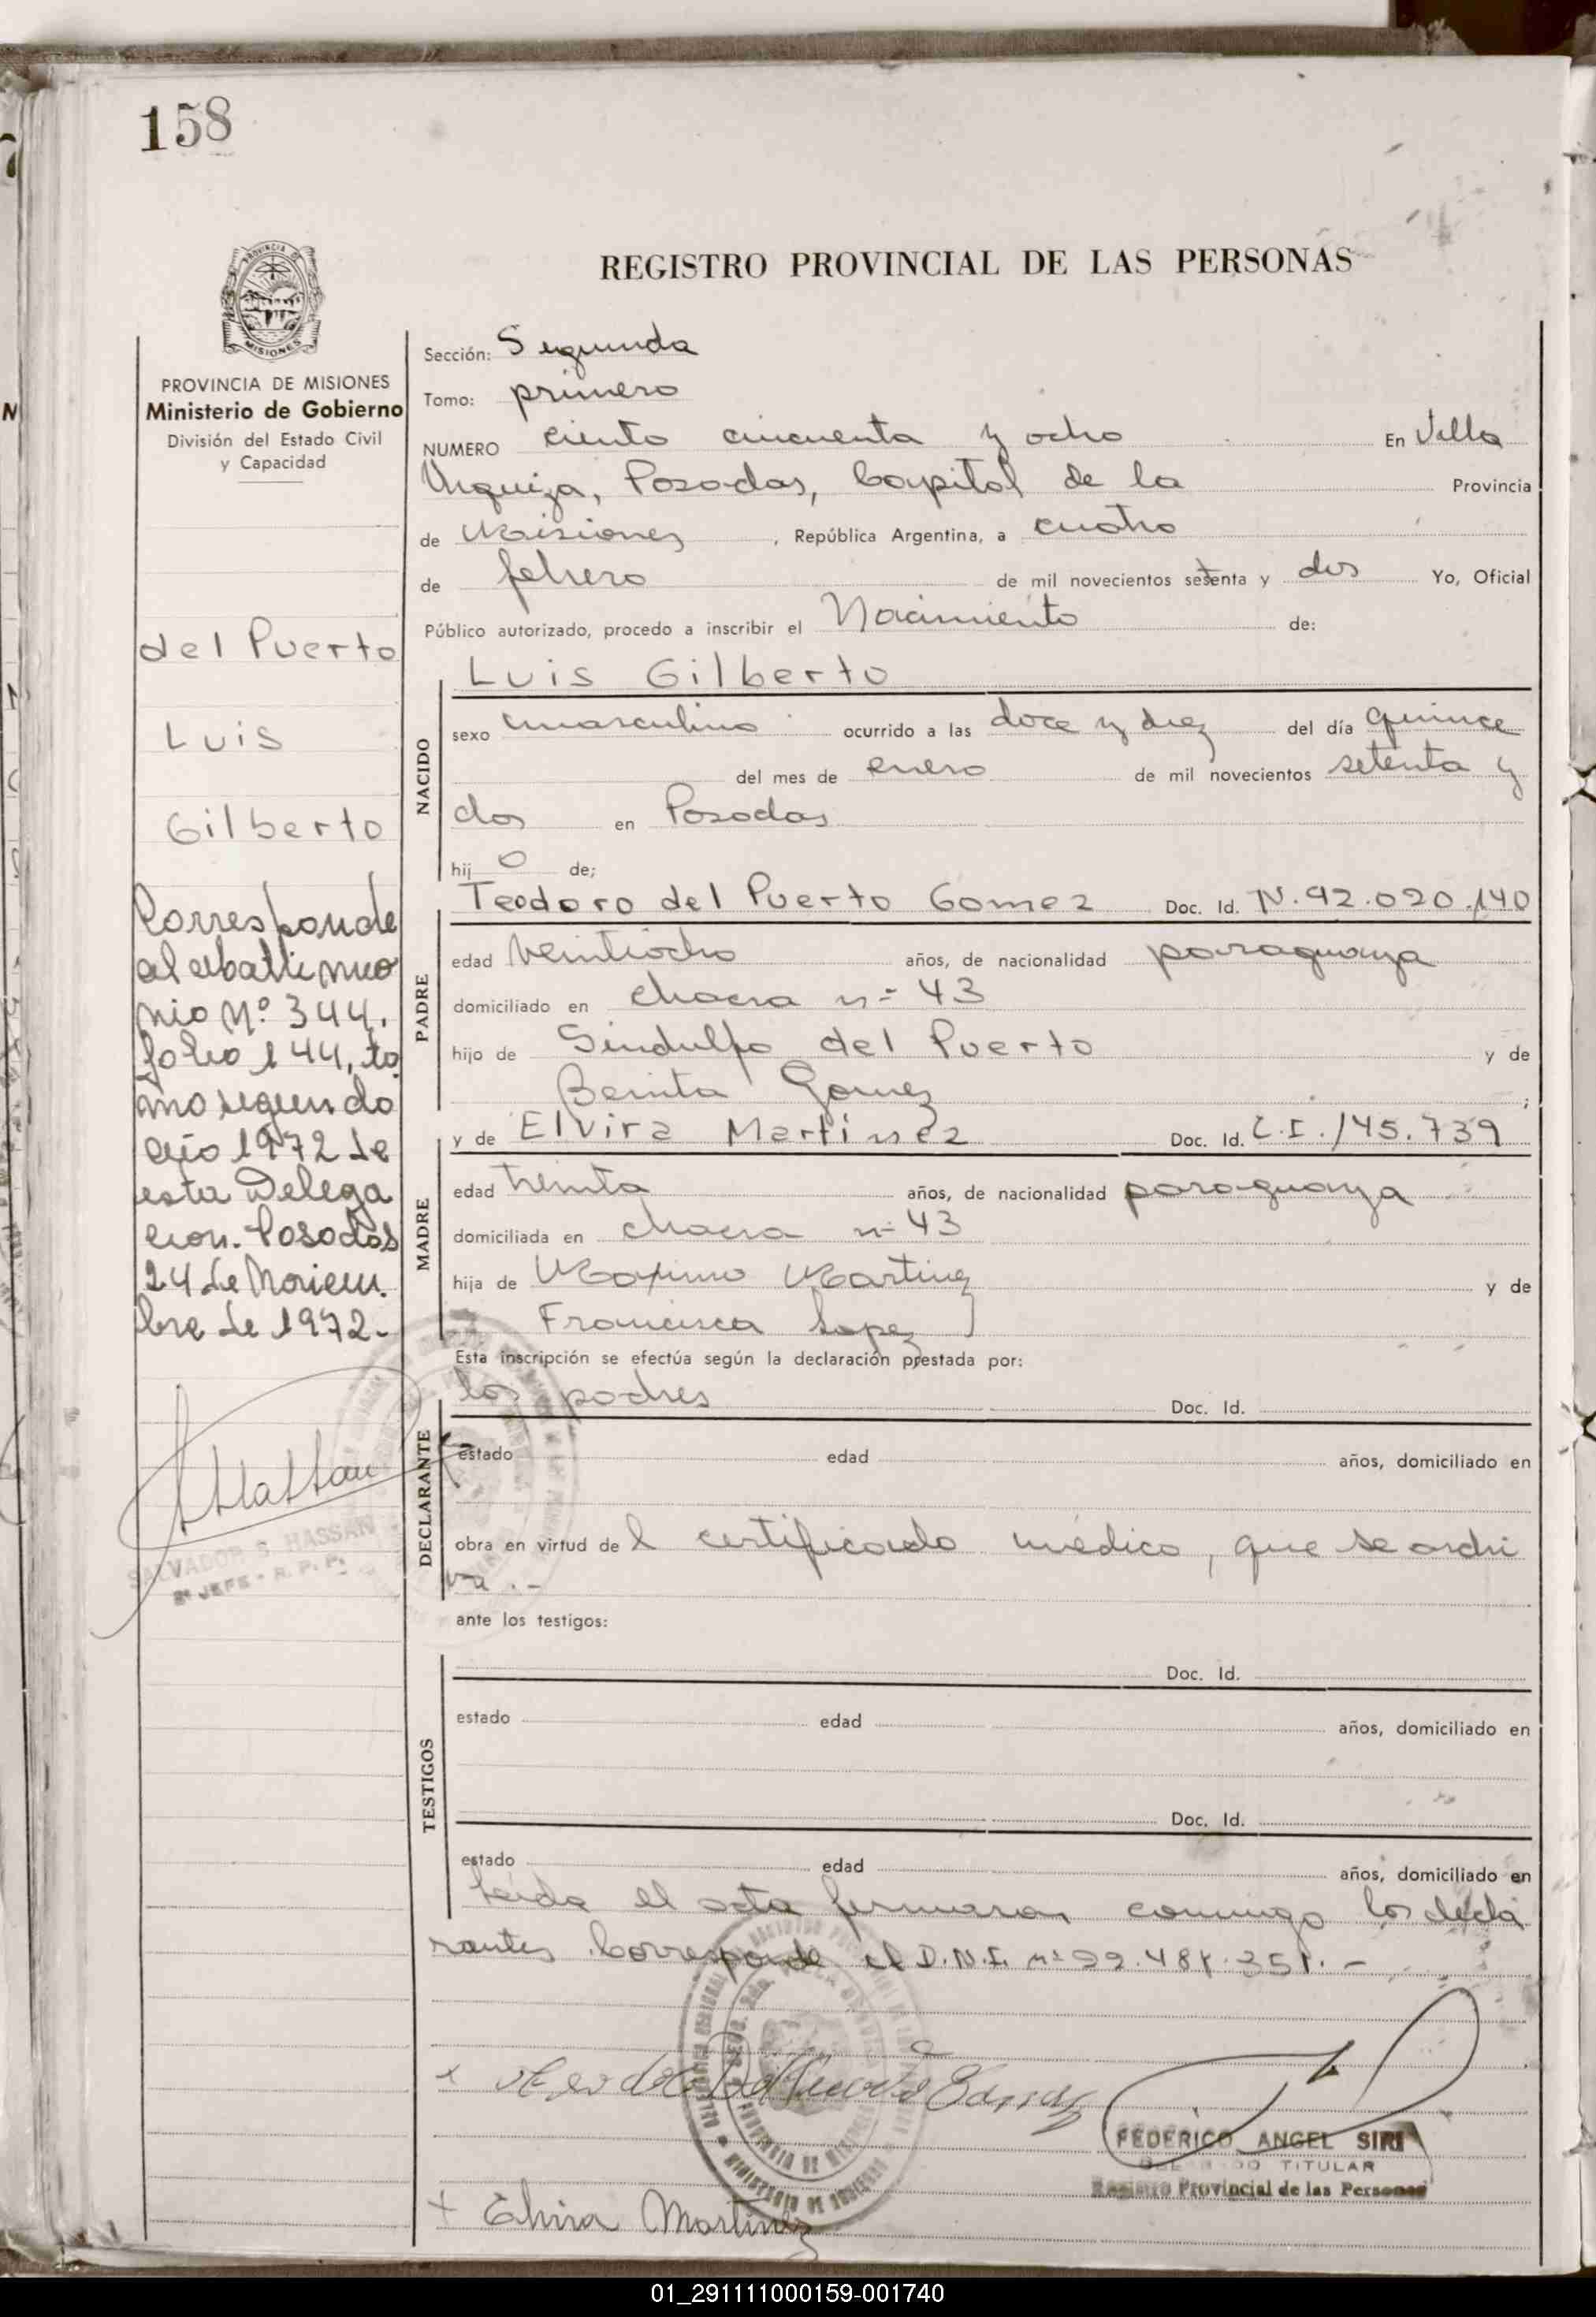 158
REGISTRO PROVINCIAL DE LAS PERSONAS
MISIONES
PROVINCIA DE MISIONES
Ministerio de Gobierno
División del Estado Civil
y Capacidad
del Puerto
Luis
Gilberto
Corresponde
al
nio Nº 344,
folio 144, to
mo segundo
año 1972 de
esta Delega
cion. Posadas
24 de Noviem.
bre de 1972.-
SALVADOR S. HASSAN
2º JEFE - R. P. P.
Sección: Segunda
Tomo: primero
NUMERO ciento cincuenta y ocho En Villa
Urquiza, Posadas, Capital de la Provincia
de Misiones, República Argentina, a cuatro
de febrero de mil novecientos setenta y dos Yo, Oficial
Público autorizado, procedo a inscribir el Nacimiento de:
Luis Gilberto
NACIDO
sexo masculino ocurrido a las doce y diez del día quince
del mes de enero de mil novecientos setenta y
dos en Posadas
hij o de;
Teodoro del Puerto Gomez Doc. Id. N. 92.020.140
PADRE
edad veintiocho años, de nacionalidad paraguaya
domiciliado en chacra nº 43
hijo de Sindulfo del Puerto y de
Benita Gomez ;
y de Elvira Martinez Doc. Id. C.I. 145.739
MADRE
edad treinta años, de nacionalidad paraguaya
domiciliada en chacra nº 43
hija de Maximo Martinez y de
Francisca Lopez
Esta inscripción se efectúa según la declaración prestada por:
los padres Doc. Id.
DECLARANTE
estado edad años, domiciliado en
obra en virtud de l certificado médico, que se archi
va.-
ante los testigos:
Doc. Id.
TESTIGOS
estado edad años, domiciliado en
Doc. Id.
estado edad años, domiciliado en
Leida el acta firmaron conmigo los decla
rantes. Corresponde el D.N.I. nº 22.481.351.-
Elvira Martinez
FEDERICO ANGEL SIRI
TITULAR
Registro Provincial de las Personas
01_291111000159-001740